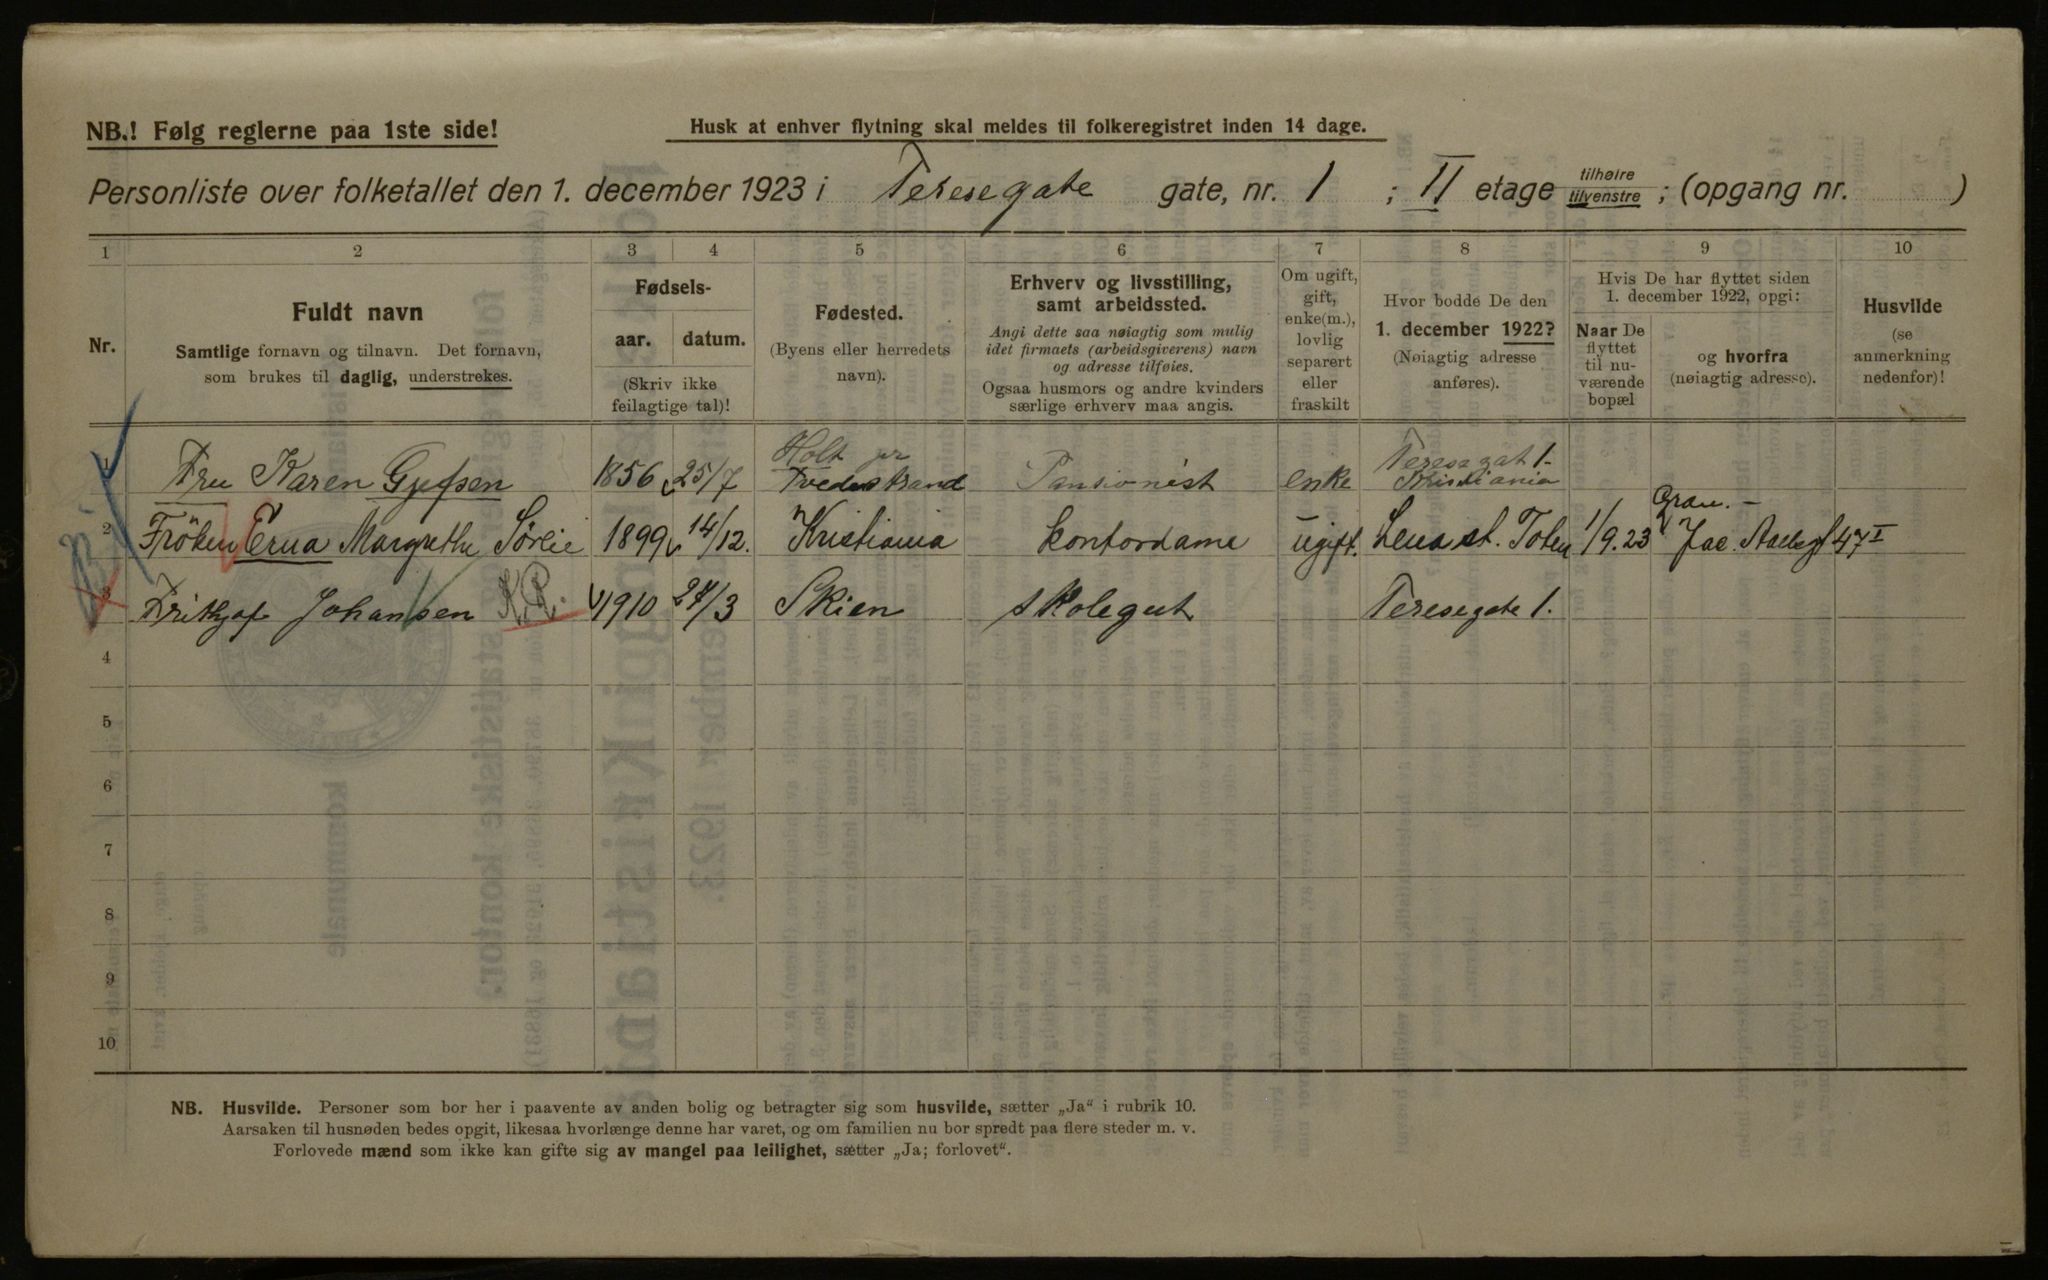 NB.! Følg reglerne paa 1ste side!
Husk at enhver flytning skal meldes til folkeregistret inden 14 dage.
Personliste over folketallet den 1. december 1923 i Teresegate gate, nr. 1 ; II etage tilhøire tilvenstre ; (opgang nr. )
1 2 3 4 5 6 7 8 9 10
Nr.
Fuldt navn
Samtlige fornavn og tilnavn. Det fornavn,
som brukes til daglig, understrekes.
Fødsels-
aar. datum.
(Skriv ikke
feilagtige tal)!
Fødested.
(Byens eller herredets
navn).
Erhverv og livsstilling,
samt arbeidssted.
Angi dette saa nøiagtig som mulig
idet firmaets (arbeidsgiverens) navn
og adresse tilføies.
Ogsaa husmors og andre kvinders
særlige erhverv maa angis.
Om ugift,
gift,
enke(m.),
lovlig
separert
eller
fraskilt
Hvor bodde De den
1. december 1922?
(Nøiagtig adresse
anføres).
Hvis De har flyttet siden
1. december 1922, opgi:
Naar De
flyttet
til nu-
værende
bopæl
og hvorfra
(nøiagtig adresse).
Husvilde
(se
anmerkning
nedenfor)!
1 Fru Karen Gjefsen 1856 25/7 Holt pr Tvedestrand Pansionist enke Teresegat 1. Kristiania
2 Frøken Erna Margrethe Sørlie 1899 14/12. Kristiania kontordame ugift. Lena st. Toten 1/9.23 Jac. Aallsgt 47 I
3 Frithjof Johansen K.R. 1910 27/3 Skien skolegut Teresegate 1.
4
5
6
7
8
9
10
NB. Husvilde. Personer som bor her i paavente av anden bolig og betragter sig som husvilde, sætter „Ja“ i rubrik 10.
Aarsaken til husnøden bedes opgit, likesaa hvorlænge denne har varet, og om familien nu bor spredt paa flere steder m. v.
Forlovede mænd som ikke kan gifte sig av mangel paa leilighet, sætter „Ja; forlovet“.